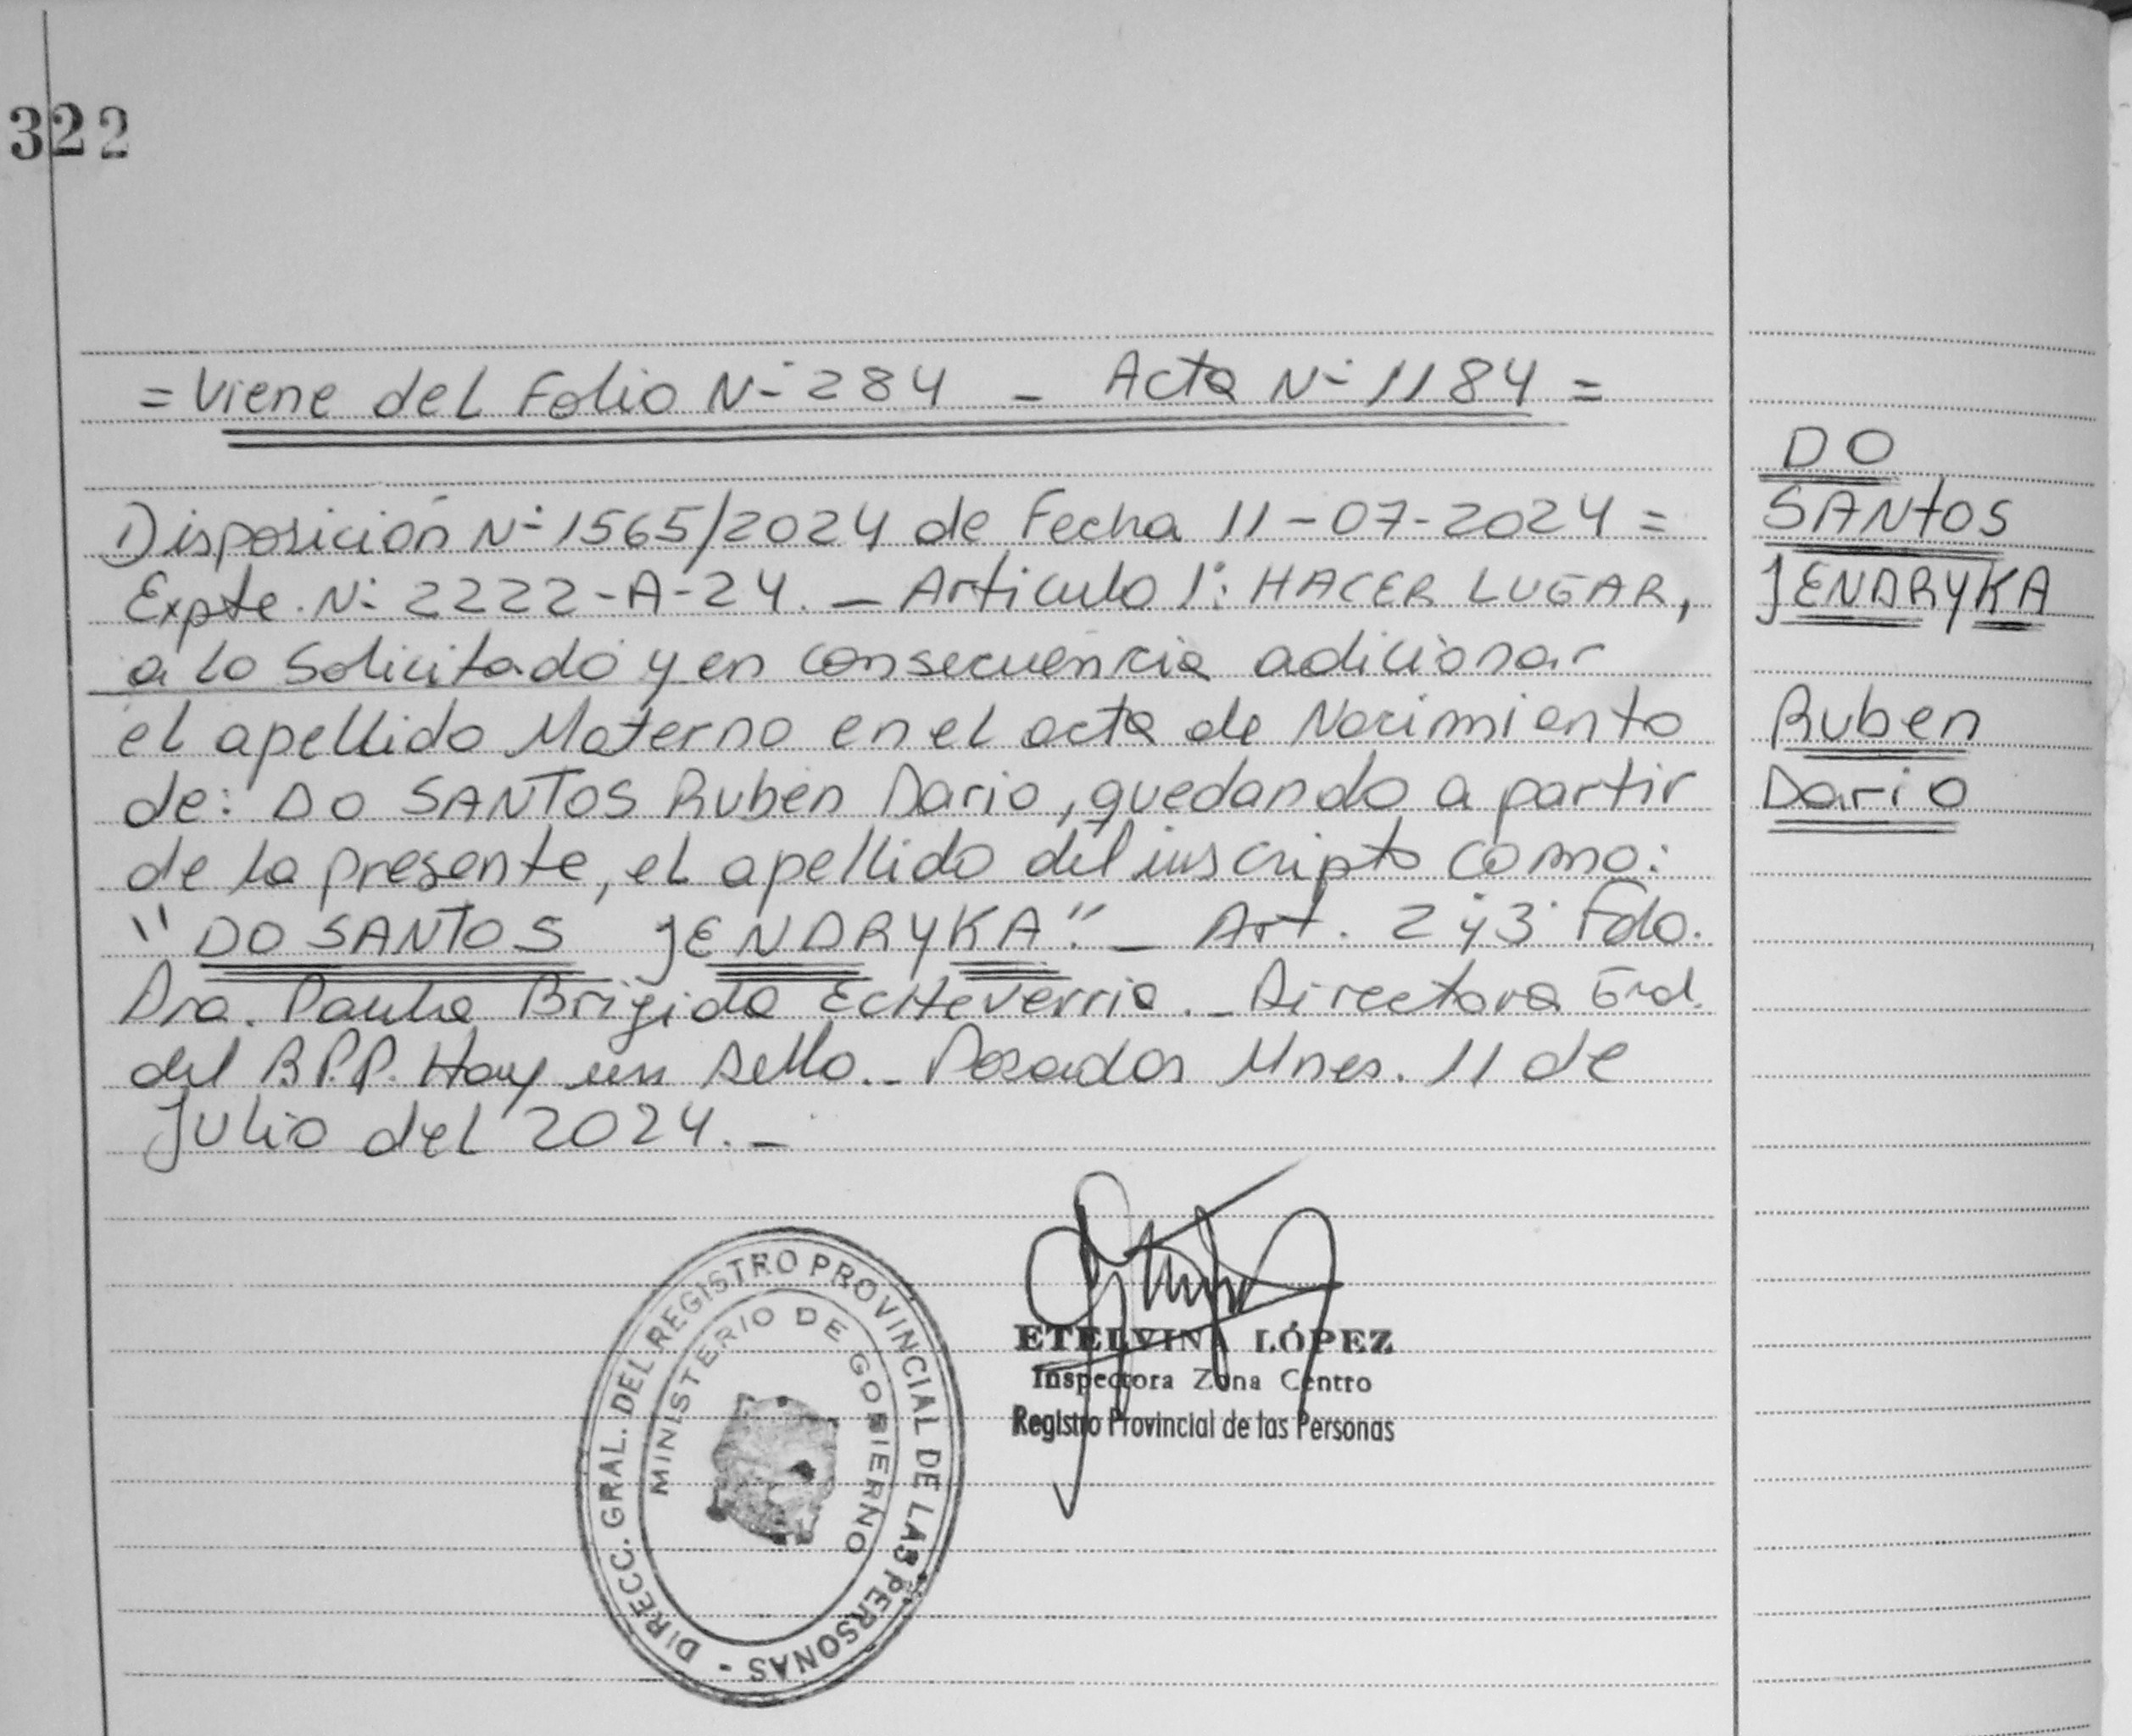 322
= Viene del Folio Nº 284 - Acta Nº 1184 =
Disposición Nº 1565/2024 de Fecha 11-07-2024 =
Expte. Nº 2222-A-24. - Articulo 1º: HACER LUGAR,
a lo Solicitado y en consecuencia adicionar
el apellido Materno en el acta de Nacimiento
de: DO SANTOS Ruben Dario, quedando a partir
de la presente, el apellido del inscripto como:
"DO SANTOS JENDRYKA". - Art. 2º y 3º Fdo.
Dra. Paula Brigida Echeverria. - Directora Gral.
del R.P.P. Hay un sello. - Posadas Mnes. 11 de
Julio del 2024. -
DO
SANtOS
JENDRYKA
Ruben
Dario
DIRECC. GRAL. DEL REGISTRO PROVINCIAL DE LAS PERSONAS -
MINISTERIO DE GOBIERNO
ETELVINA LÓPEZ
Inspectora Zona Centro
Registro Provincial de las Personas